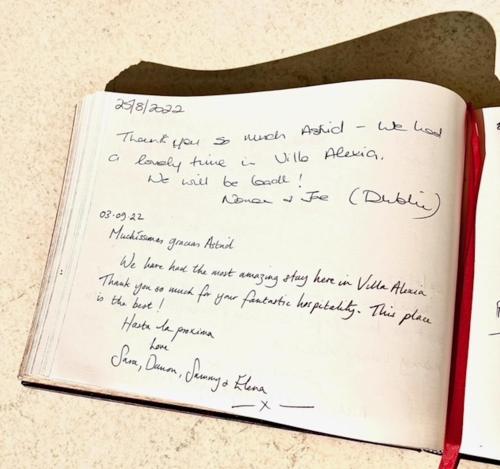 25/8/2022
Thank you so much Astrid - We had
a lovely time in Villa Alexia.
We will be back!
& Joe (Dublin)
03.09.22
Muchissimas gracias Astrid
We have had the most amazing stay here in Villa Alexia
Thank you so much for your fantastic hospitality. This place
is the best!
Hasta la proxima
love
Sara, Damon, Sammy & Elena
— x —